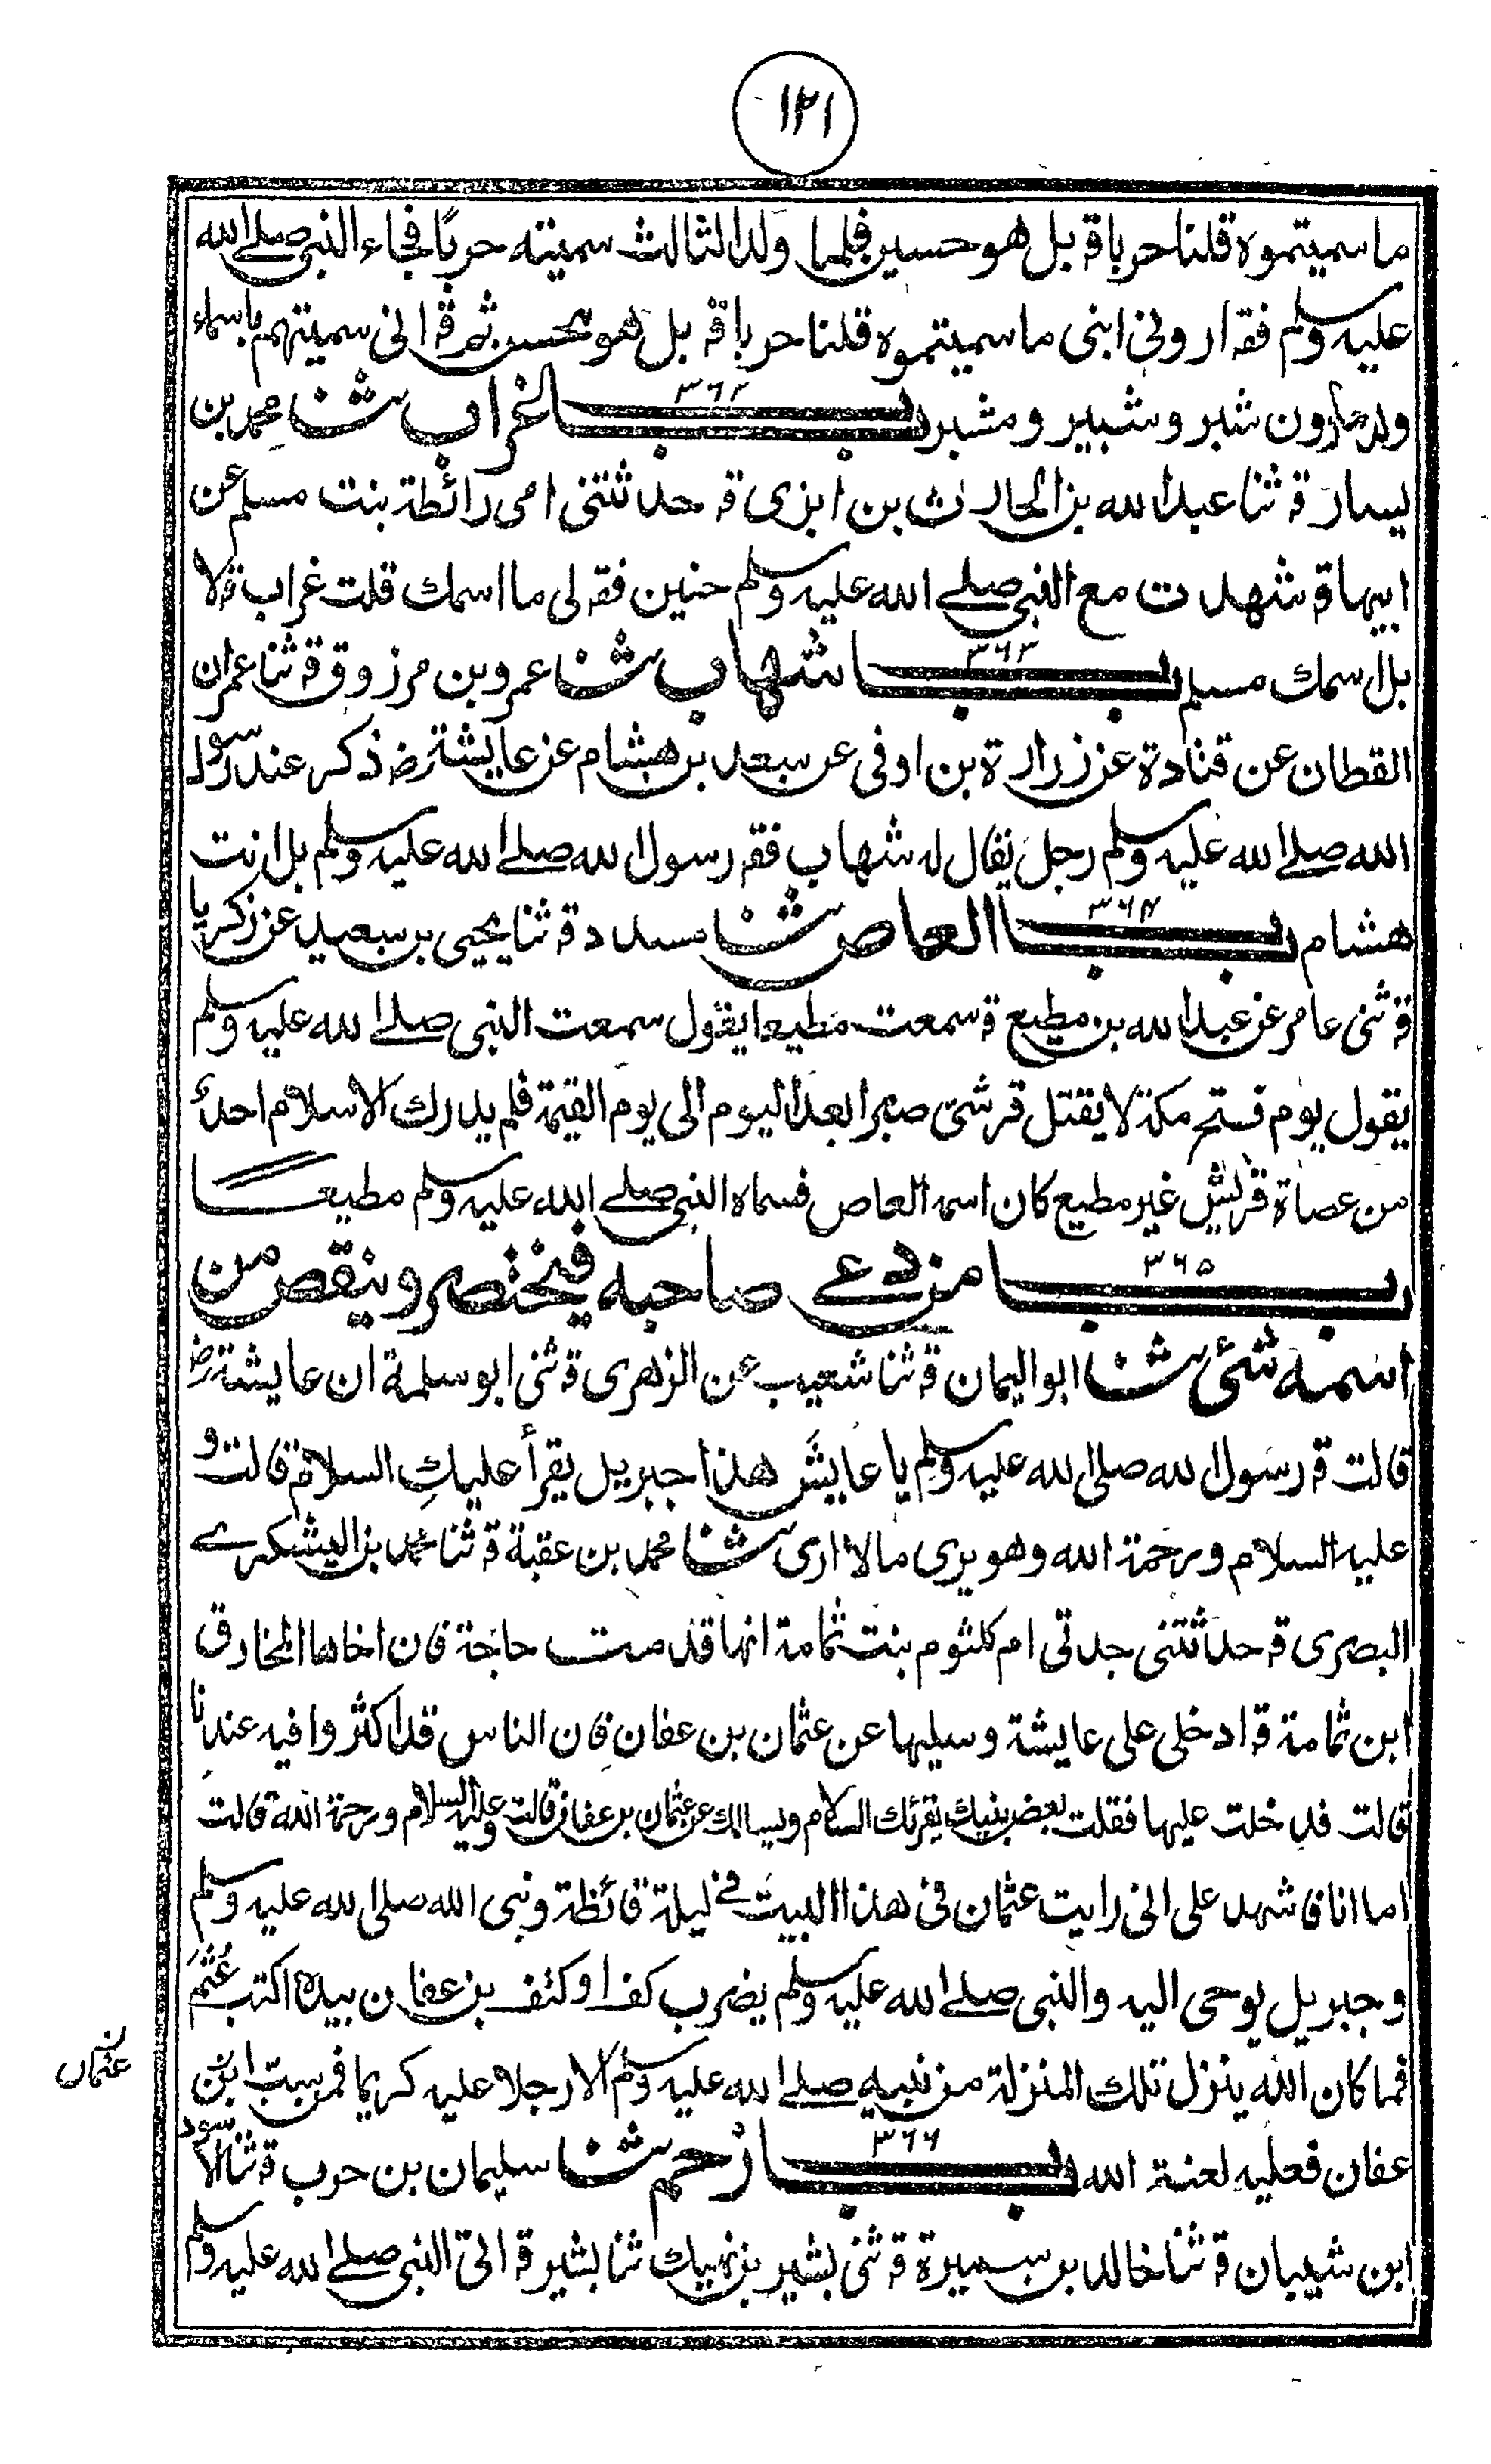 ١٢١
ما سميتموه قلنا حربا قـ بل هو حسين فلما ولد الثالث سميته حربًا فجاء النبى صلے الله
عليه وسلم فقـ ارونى ابنى ما سميتموه قلنا حربا قـ بل هو محسن ثم قـ انى سميتهم باسماء
ولد هارون شبر وشبير ومشبر بــاب ٣٦٢ غراب ثنا محمد بن
يسار قـ ثنا عبد الله بن الحارث بن ابزى قـ حدثتنى امى رائطة بنت مسلم عن
ابيها قـ شهدت مع النبى صلے الله عليه وسلم حنين فقـ لى ما اسمك قلت غراب قـ لا
بل اسمك مسلم بــاب ٣٦٣ شهاب ثنا عمرو بن مرزوق قـ ثنا عمران
القطان عن قتادة عن زرارة بن اوفى عن سعد بن هشام عن عايشة رضـ ذكر عند رسول
الله صلے الله عليه وسلم رجل يقال له شهاب فقـ رسول الله صلے الله عليه وسلم بل انت
هشام بــاب ٣٦٤ العاص ثنا مسدد قـ ثنا يحيى بن سعيد عن زكريا
قـ ثنى عامر عن عبد الله بن مطيع قـ سمعت مطيعا يقول سمعت النبى صلے الله عليه وسلم
يقول يوم فتح مكة لا يقتل قرشىّ صبرا بعد اليوم الى يوم القيمة فلم يدرك الاسلام احدٌ
من عصاة قريش غير مطيع كان اسمه العاص فسماه النبى صلے الله عليه وسلم مطيعــا
بــاب ٣٦٥ من دعے صاحبه فيختصر وينقص من
اسمه شئ ثنا ابو اليمان قـ ثنا شعيب عن الزهرى قـ ثنى ابو سلمة ان عايشة رضـ
قالت قـ رسول الله صلى الله عليه وسلم يا عايشَ هذا جبريل يقرأ عليكِ السلام قالت و
عليه السلام ورحمة الله وهو يرى ما لا ارى ثنا محمد بن عقبة قـ ثنا محمد بن اليشكرے
البصرى قـ حدثتنى جدتى ام كلثوم بنت ثمامة انها قدمت حاجة فان اخاها المخارق
ابن ثمامة قـ ادخلى على عايشة وسليها عن عثمان بن عفان فان الناس قد اكثروا فيه عندنا
قالت فدخلت عليها فقلت بعض بنيك يقرئك السلام ويسالك عن عثمان بن عفان قالت وعليه السلام ورحمة الله قالت
اما انا فاشهد على انى رايت عثمان فى هذا البيت فى ليلة قائظة ونبى الله صلى الله عليه وسلم
وجبريل يوحى اليه والنبى صلے الله عليه وسلم يضرب كف او كتف بن عفان بيده اكتب عُثْمَ
فما كان الله ينزل تلك المنزلة من نبيه صلے الله عليه وسلم الا رجلا عليه كريما فمن سبّ ابن
عثمان ن
عفان فعليه لعنة الله بــاب ٣٦٦ زحم ثنا سليمان بن حرب قـ ثنا الاسود
ابن شيبان قـ ثنا خالد بن سميرة قـ ثنى بشير بن نهيك ثنا بشير قـ اتى النبى صلے الله عليه وسلم